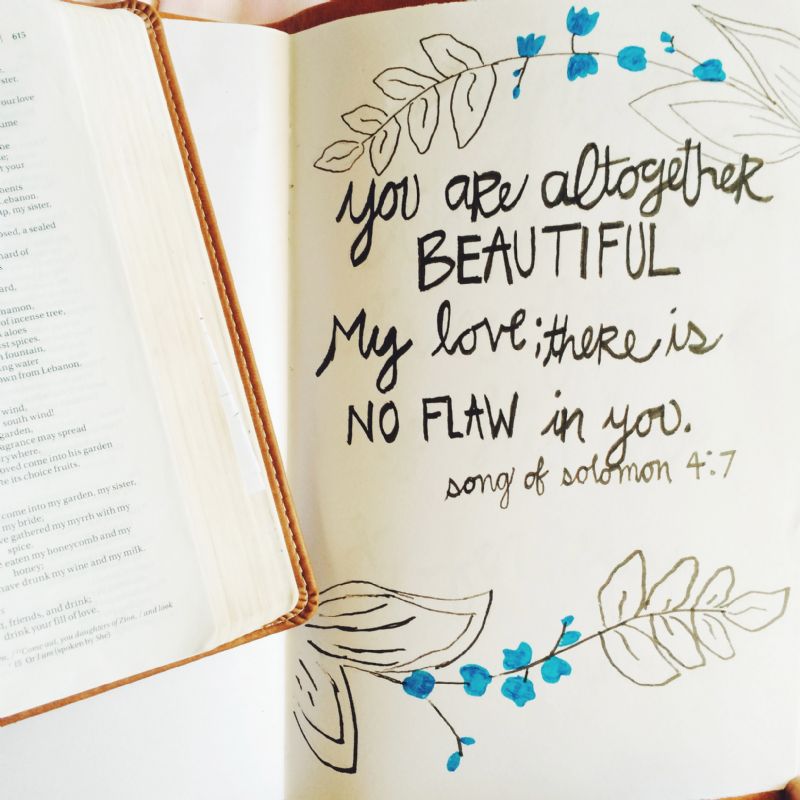 615
ster.
your love
ame
ne
e;
f your
ments
Lebanon.
ap, my sister,
osed, a sealed
hard of
s
ard,
namon,
of incense tree,
aloes
st spices.
n fountain,
ing water
own from Lebanon.
wind,
south wind!
garden,
agrance may spread
rywhere.
oved come into his garden
e its choice fruits.
come into my garden, my sister,
my bride,
ve gathered my myrrh with my
spice.
eaten my honeycomb and my
honey;
have drunk my wine and my milk.
friends, and drink;
drink your fill of love.
Come out, you daughters of Zion, / and look
15 Or I am (spoken by She)
you are altogether
BEAUTIFUL
My love; there is
NO FLAW in you.
song of solomon 4:7